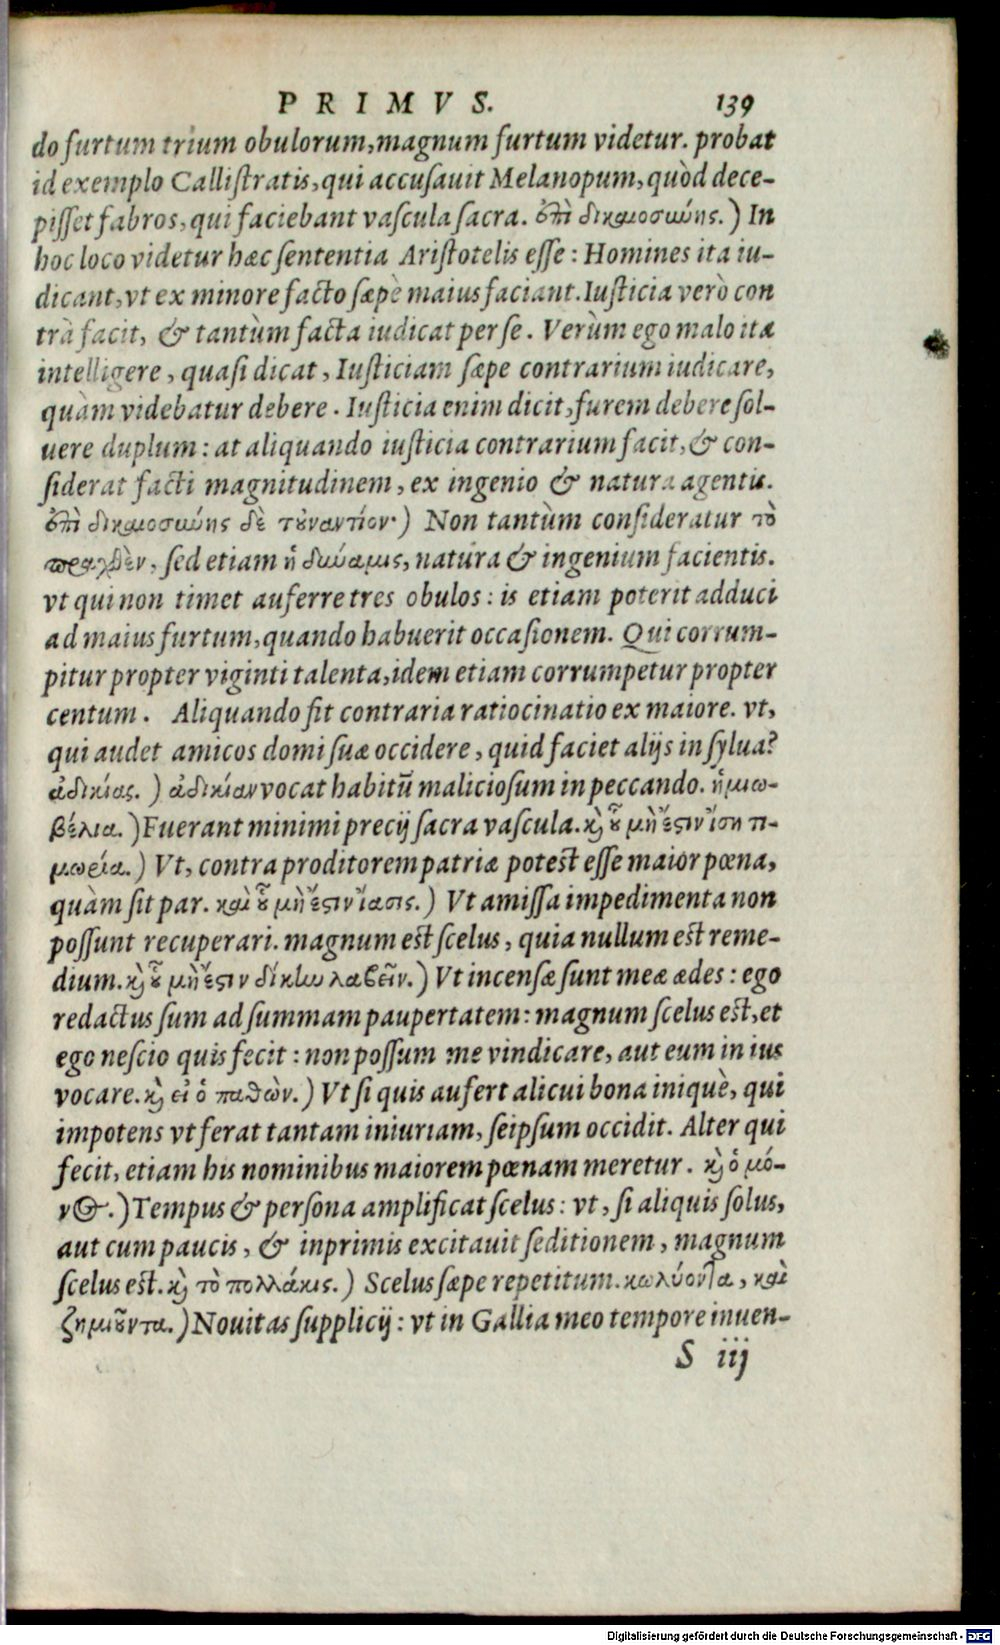 PRIMVS. 139
do furtum trium obulorum, magnum furtum videtur. probat
id exemplo Callistratis, qui accusavit Melanopum, quòd dece-
pisset fabros, qui faciebant vascula sacra. ἐπὶ δικαιοσύνης.) In
hoc loco videtur hæc sententia Aristotelis esse: Homines ita iu-
dicant, vt ex minore facto sæpè maius faciant. Iusticia verò con
trà facit, & tantùm facta iudicat per se. Verùm ego malo itæ
intelligere, quasi dicat, Iusticiam sæpe contrarium iudicare,
quàm videbatur debere. Iusticia enim dicit, furem debere sol-
uere duplum: at aliquando iusticia contrarium facit, & con-
siderat facti magnitudinem, ex ingenio & natura agentis.
ἐπὶ δικαιοσύνης δὲ τὐναντίον·) Non tantùm consideratur τὸ
πραχθὲν, sed etiam ἡ δύναμις, natura & ingenium facientis.
vt qui non timet auferre tres obulos: is etiam poterit adduci
ad maius furtum, quando habuerit occasionem. Qui corrum-
pitur propter viginti talenta, idem etiam corrumpetur propter
centum. Aliquando fit contraria ratiocinatio ex maiore. vt,
qui audet amicos domi suæ occidere, quid faciet alijs in sylua?
ἀδικίας.) ἀδικίαν vocat habitũ maliciosum in peccando. ἡμιω-
βέλια.) Fuerant minimi precij sacra vascula. καὶ οὗ μὴ ἔστιν ἴση τι-
μωρία.) Vt, contra proditorem patriæ potest esse maior pœna,
quàm sit par. καὶ οὗ μὴ ἔστιν ἴασις.) Vt amissa impedimenta non
possunt recuperari. magnum est scelus, quia nullum est reme-
dium. καὶ οὗ μὴ ἔστιν δίκην λαβεῖν.) Vt incensæ sunt meæ ædes: ego
redactus sum ad summam paupertatem: magnum scelus est, et
ego nescio quis fecit: non possum me vindicare, aut eum in ius
vocare. καὶ εἰ ὁ παθὼν.) Vt si quis aufert alicui bona iniquè, qui
impotens vt ferat tantam iniuriam, seipsum occidit. Alter qui
fecit, etiam his nominibus maiorem pœnam meretur. καὶ ὁ μό-
νος.) Tempus & persona amplificat scelus: vt, si aliquis solus,
aut cum paucis, & inprimis excitauit seditionem, magnum
scelus est. καὶ τὸ πολλάκις.) Scelus sæpe repetitum. κωλύοντα, καὶ
ζημιοῦντα.) Nouitas supplicij: vt in Gallia meo tempore inuen-
S iij
Digitalisierung gefördert durch die Deutsche Forschungsgemeinschaft - DFG